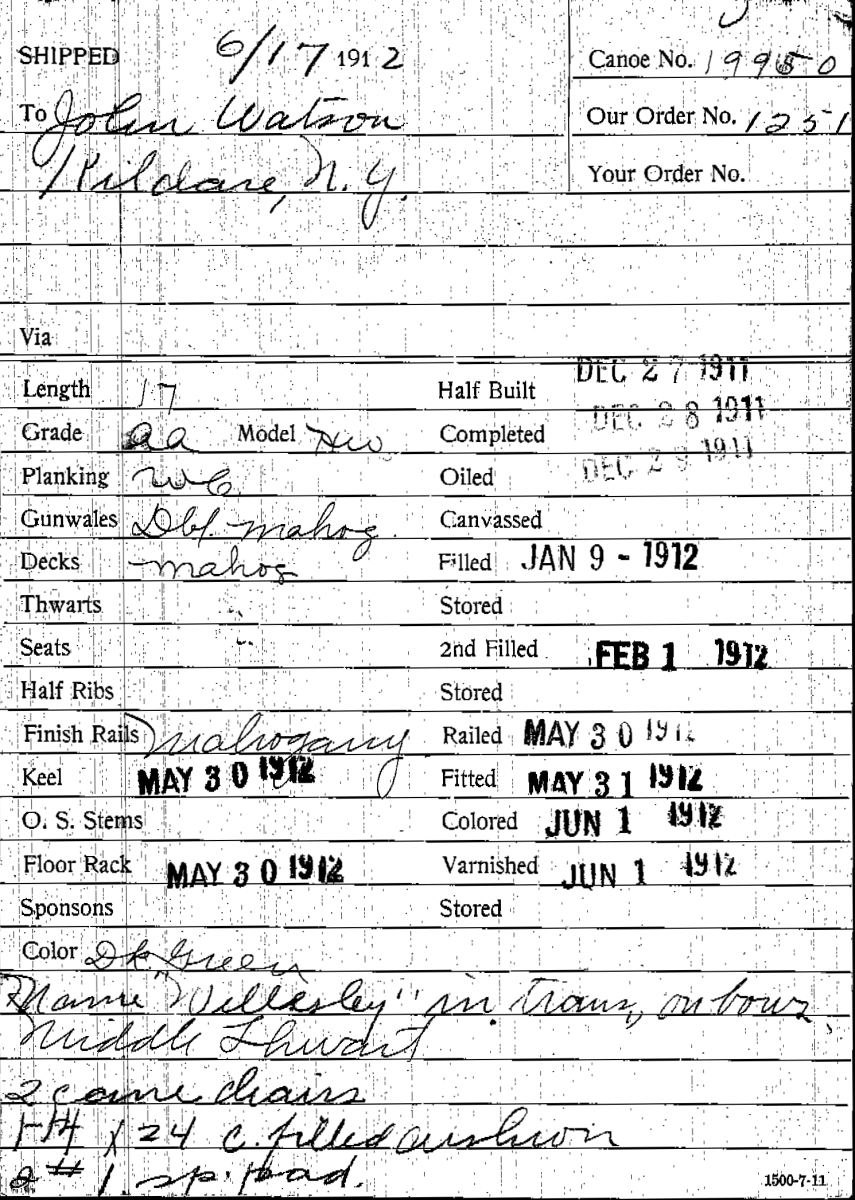 SHIPPED 6/17 1912
Canoe No. 19950
To John Watson
Our Order No. 1251
Kildare, N.Y.
Your Order No.
Via
Length 17
Half Built DEC 27 1911
Grade aa Model HW
Completed DEC 28 1911
Planking WC
Oiled DEC 29 1911
Gunwales Dbl mahog
Canvassed
Decks mahog
Filled JAN 9 - 1912
Thwarts "
Stored
Seats "
2nd Filled FEB 1 1912
Half Ribs
Stored
Finish Rails Mahogany
Railed MAY 30 1912
Keel MAY 30 1912
Fitted MAY 31 1912
O. S. Stems
Colored JUN 1 1912
Floor Rack MAY 30 1912
Varnished JUN 1 1912
Sponsons
Stored
Color Dk Green
Name "Willesley" in trans, on bows,
Middle Thwart
2 cane chairs
1-14 x 24 c. filled cushion
2 # 1. sp. pad.
1500-7-11